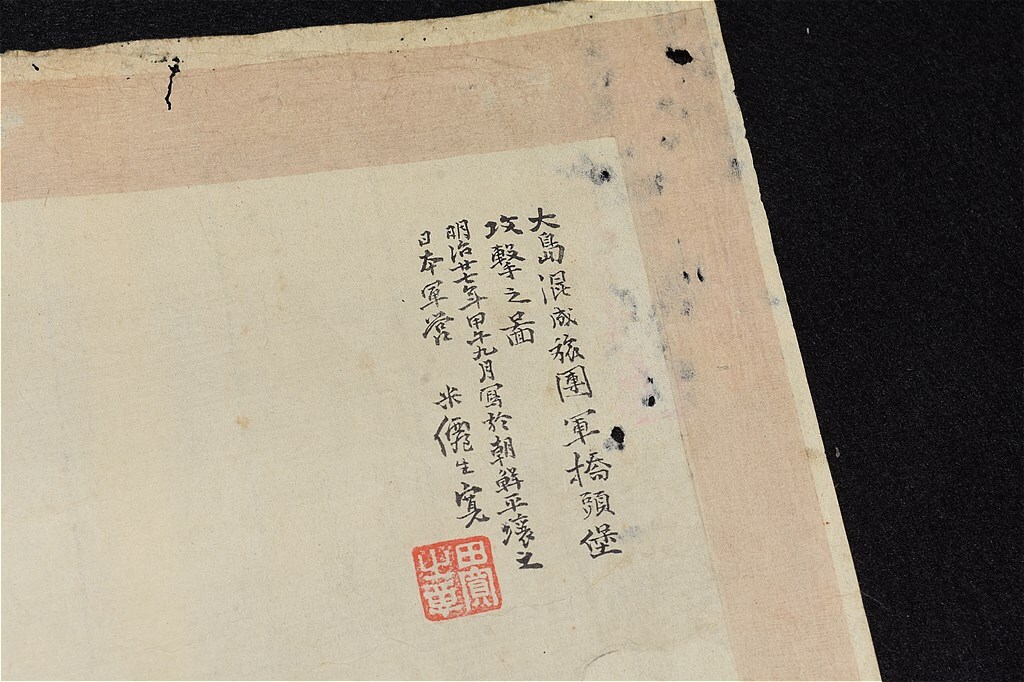 大島混成旅團軍橋頭堡
攻擊之圖
明治廿七年甲午九月寫於朝鮮平壤之
日本軍營 米僊生寬